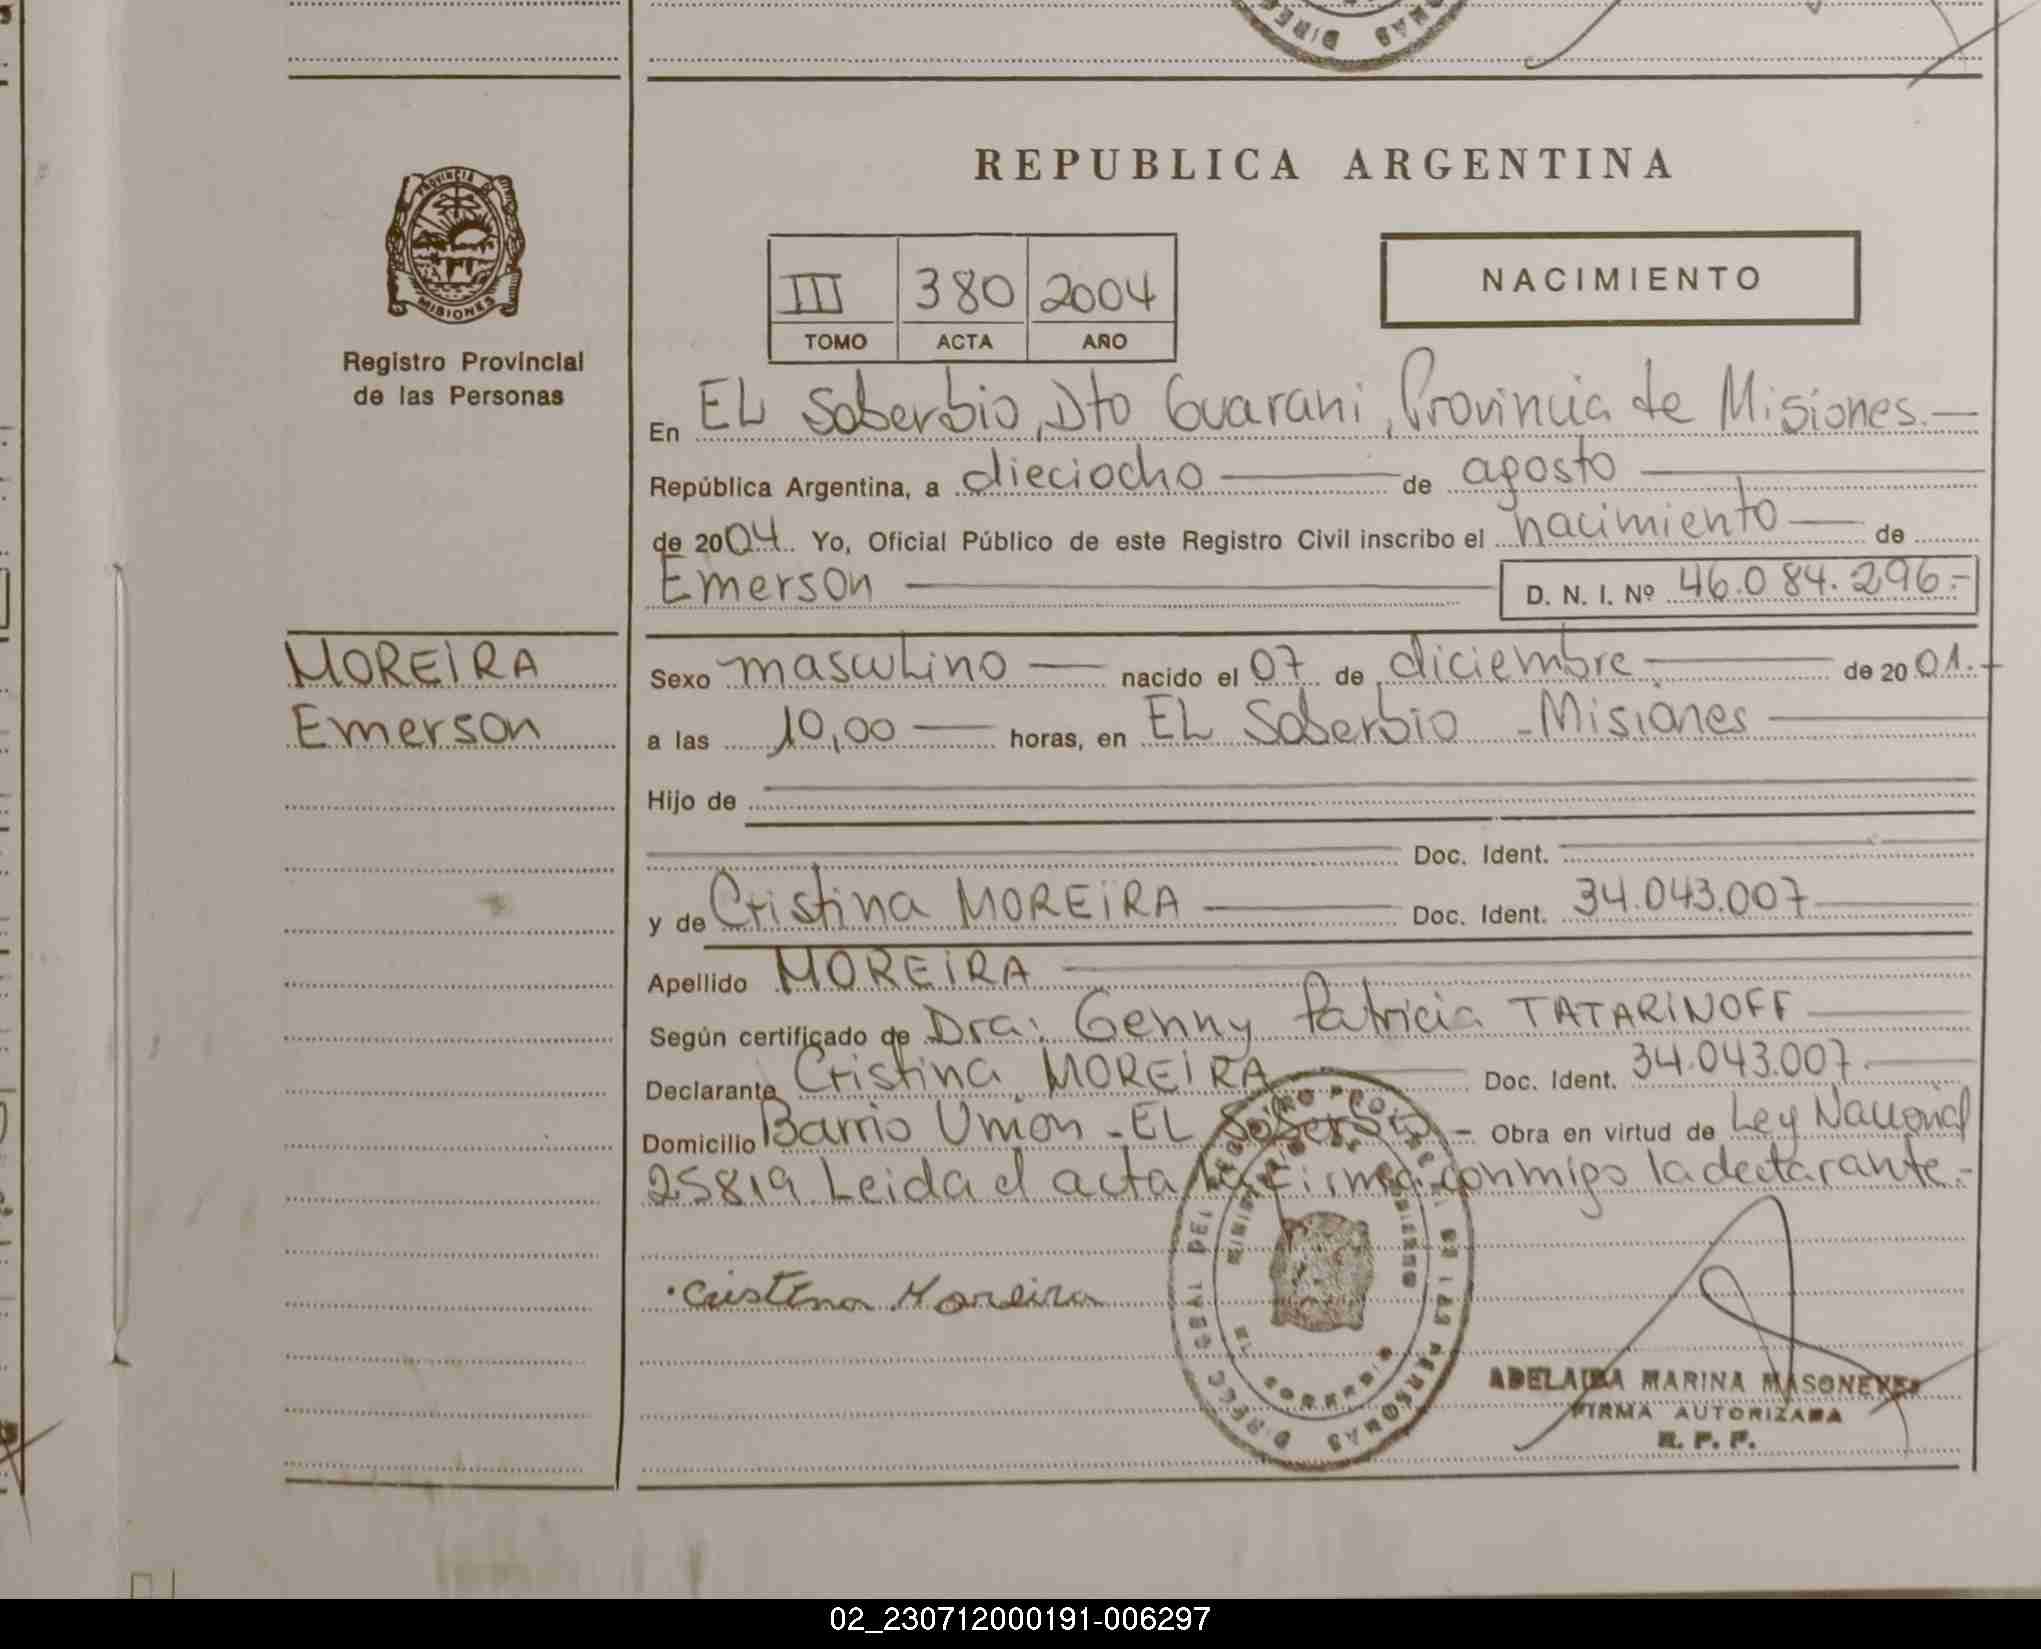 REPUBLICA ARGENTINA
PROVINCIA DE
MISIONES
Registro Provincial
de las Personas
III 380 2004
TOMO ACTA AÑO
NACIMIENTO
En EL Soberbio, Dto Guarani, Provincia de Misiones.-
República Argentina, a dieciocho de agosto
de 2004. Yo, Oficial Público de este Registro Civil inscribo el nacimiento de
Emerson D. N. I. Nº 46.084.296.-
MOREIRA
Emerson
Sexo masculino nacido el 07 de diciembre de 2001.-
a las 10,00 horas, en EL Soberbio - Misiones
Hijo de
Doc. Ident.
y de Cristina MOREIRA Doc. Ident. 34.043.007
Apellido MOREIRA
Según certificado de Dra: Genny Patricia TATARINOFF
Declarante Cristina MOREIRA Doc. Ident. 34.043.007.
Domicilio Barrio Unión - EL Soberbio - Obra en virtud de Ley Nacional
25819. Leida el acta la firma conmigo la declarante.-
Cristina Moreira
ADELAIDA MARINA
FIRMA AUTORIZADA
R. P. P.
02_230712000191-006297